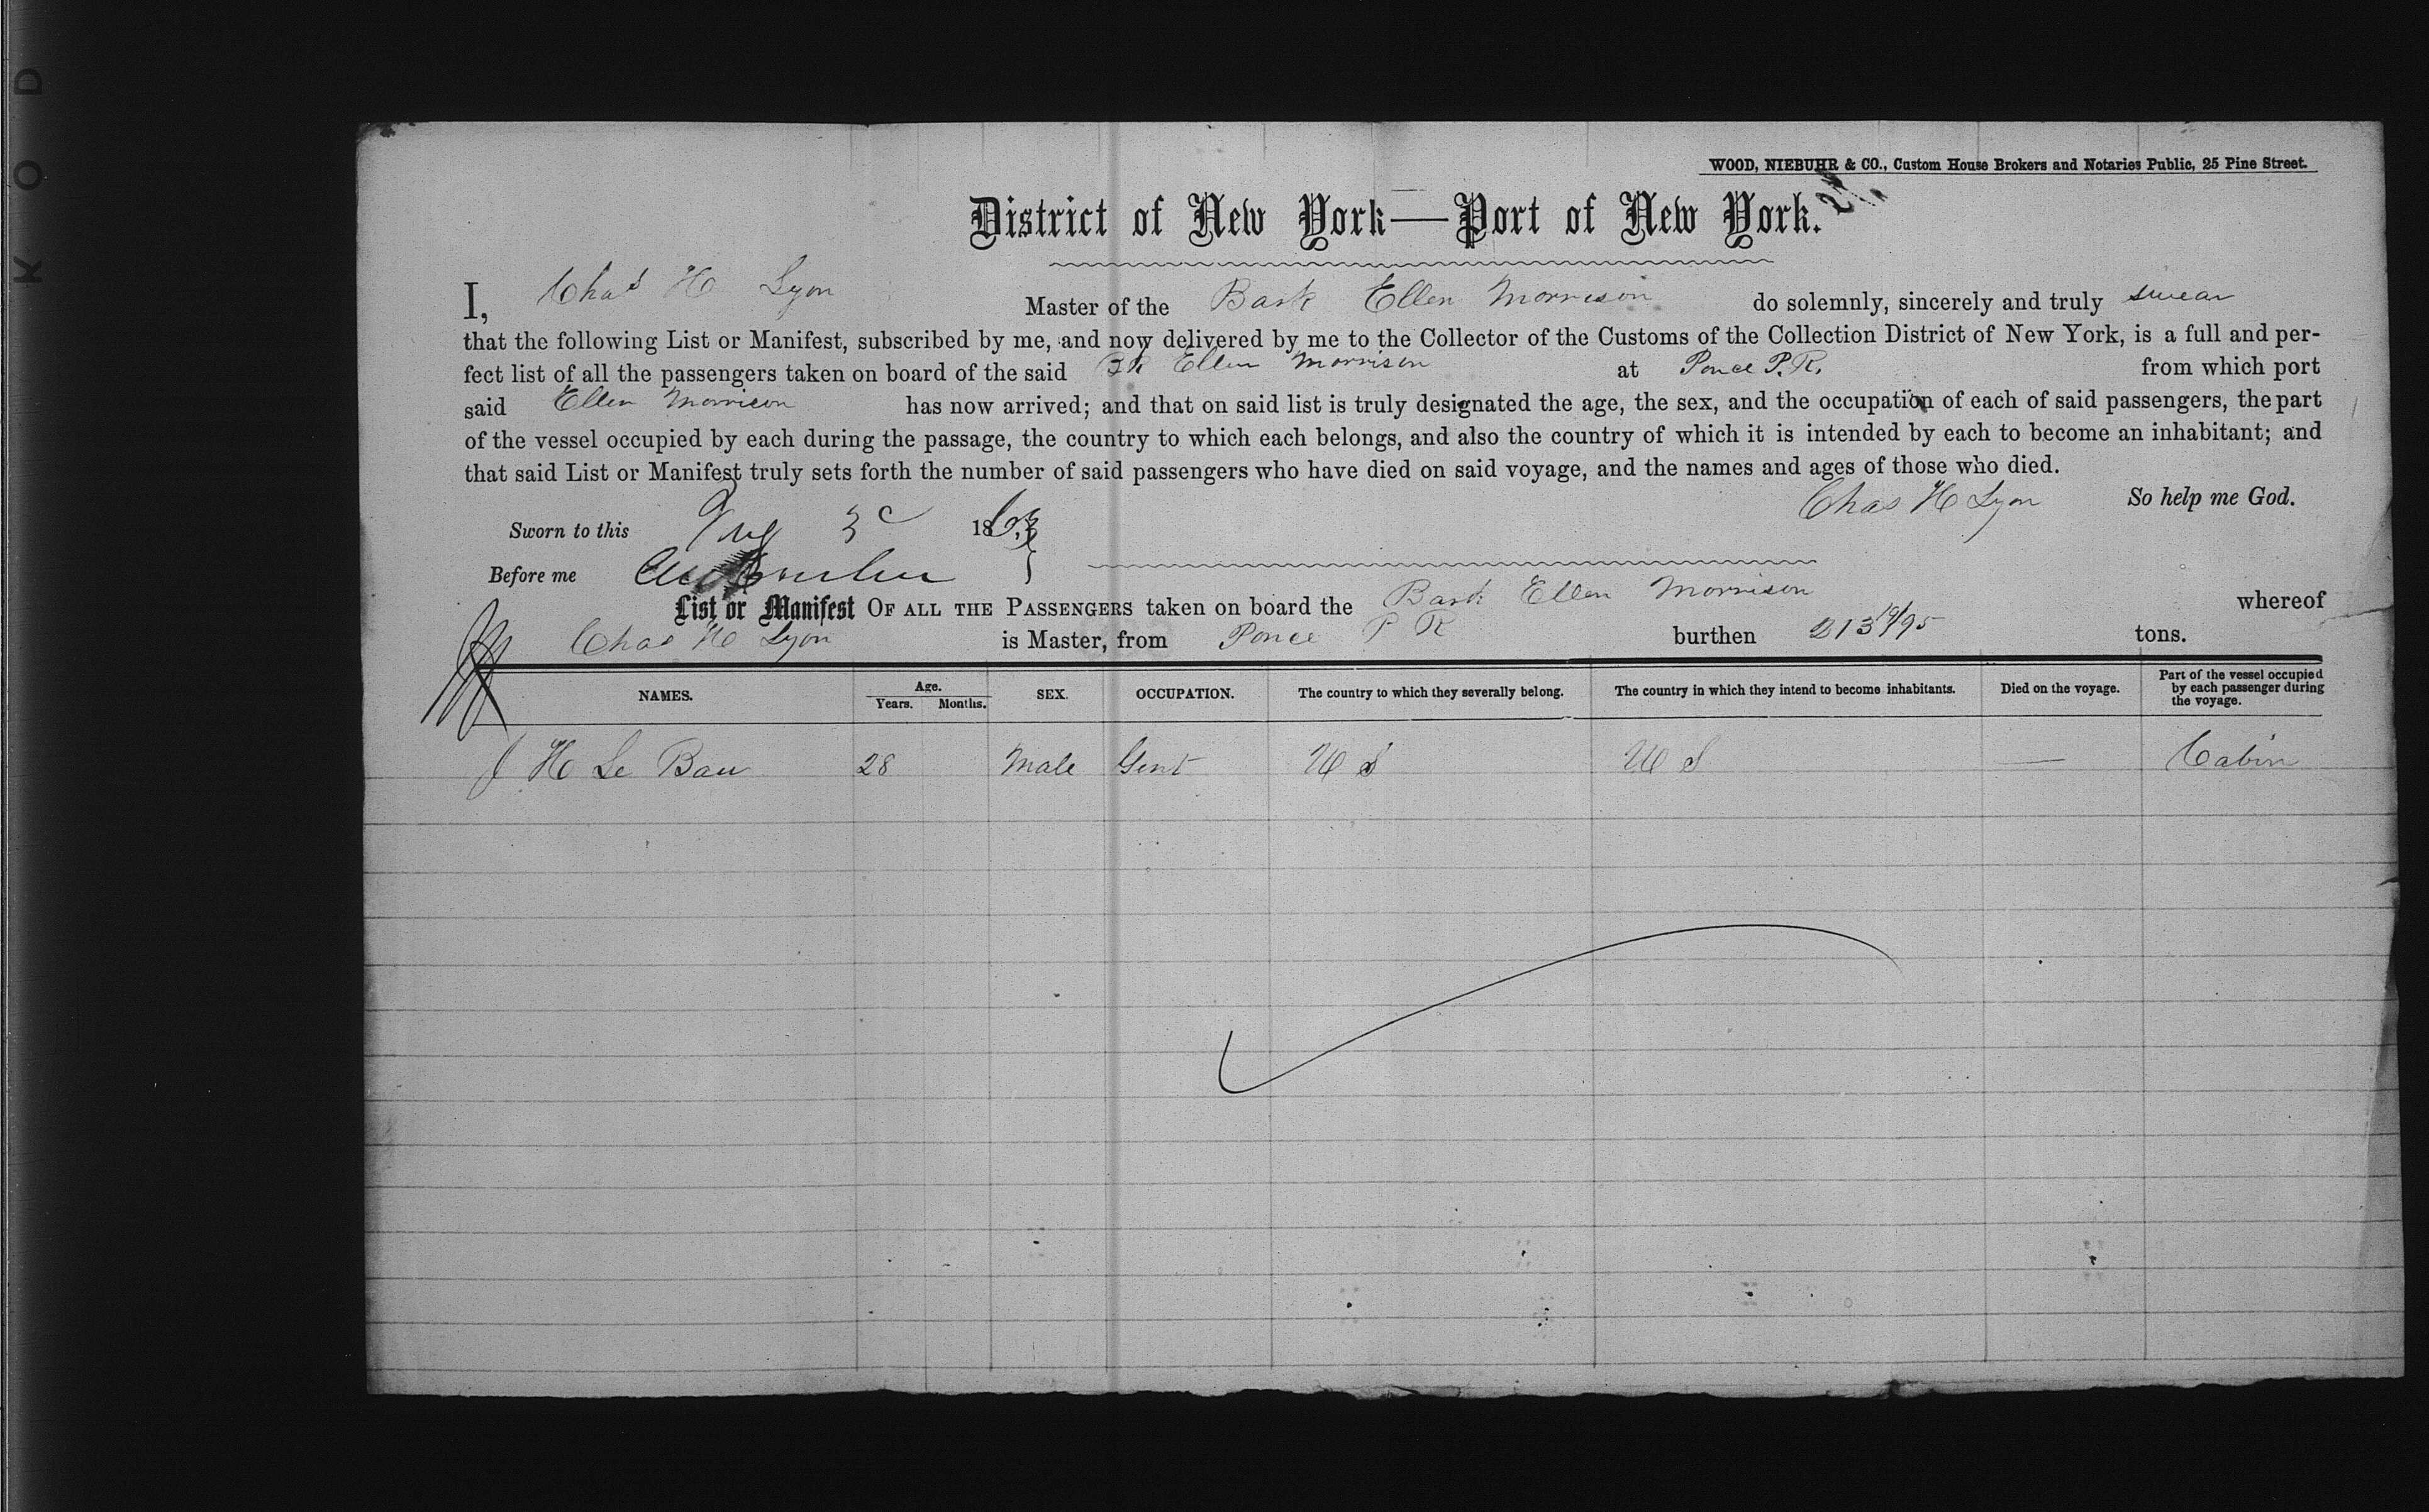 KOD
WOOD, NIEBUHR & CO., Custom House Brokers and Notaries Public, 25 Pine Street.
District of New York—Port of New York.
I, Chas H Lyon Master of the Bark Ellen Morrison do solemnly, sincerely and truly swear
that the following List or Manifest, subscribed by me, and now delivered by me to the Collector of the Customs of the Collection District of New York, is a full and per-
fect list of all the passengers taken on board of the said Bk Ellen Morrison at Ponce P.R. from which port
said Ellen Morrison has now arrived; and that on said list is truly designated the age, the sex, and the occupation of each of said passengers, the part
of the vessel occupied by each during the passage, the country to which each belongs, and also the country of which it is intended by each to become an inhabitant; and
that said List or Manifest truly sets forth the number of said passengers who have died on said voyage, and the names and ages of those who died.
Chas H Lyon So help me God.
Sworn to this Aug 3 1863
Before me
List or Manifest OF ALL THE PASSENGERS taken on board the Bark Ellen Morrison whereof
Chas H Lyon is Master, from Ponce P R burthen 213 19/95 tons.
NAMES. Age. Years. Months. SEX. OCCUPATION. The country to which they severally belong. The country in which they intend to become inhabitants. Died on the voyage. Part of the vessel occupied by each passenger during the voyage.
J H Le Bau 28 Male Gent U S U S — Cabin